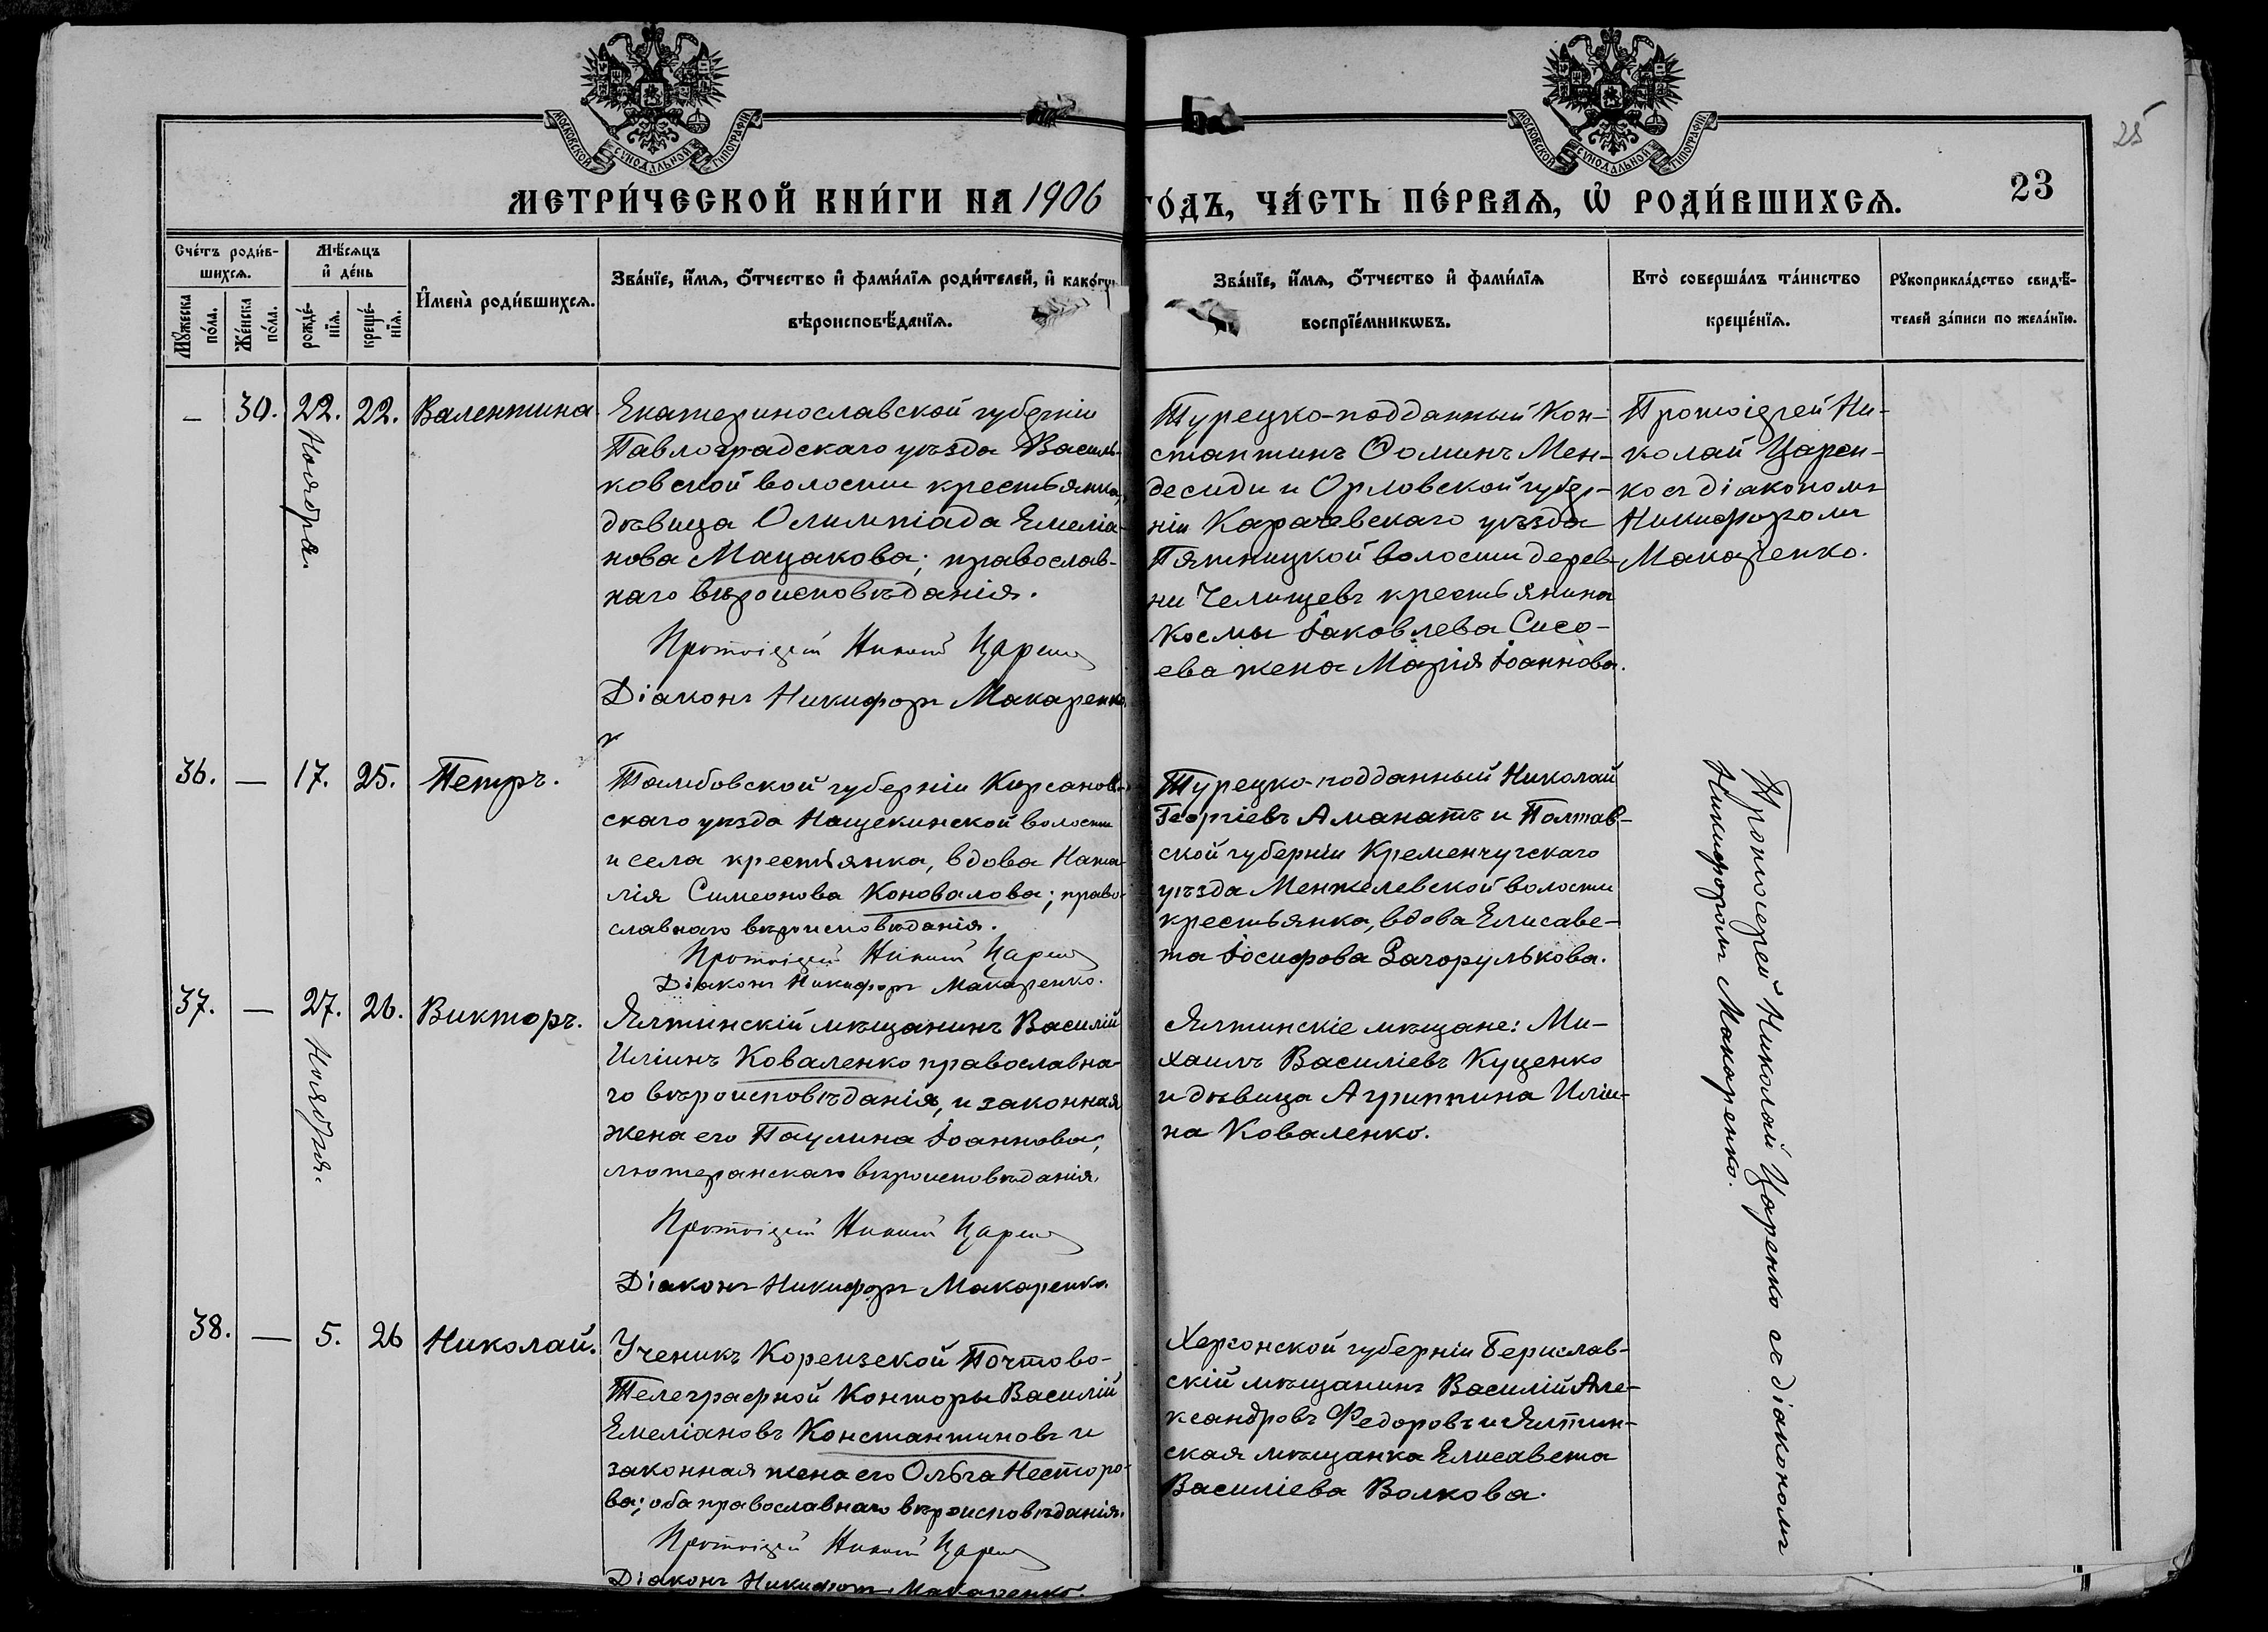 МОСКОВСКОЙ СУНОДАЛЬНОЙ ТИПОГРАФІИ
МОСКОВСКОЙ СУНОДАЛЬНОЙ ТИПОГРАФІИ
25
МЕТРИ́ЧЕСКОЙ КНИ́ГИ НА 1906 ГО́ДЪ, ЧА́СТЬ ПЕ́РВАѦ, Ѡ҆ РОДИ́ВШИХСѦ.
23
Сче́тъ роди́в-
шихсѧ.
Мꙋ́жеска по́ла.
Же́нска по́ла.
Мѣ́сѧцъ
и҆ де́нь
рожде́-нїѧ.
креще́-нїѧ.
И҆мена̀ роди́вшихсѧ.
Зва́нїе, и҆́мѧ, ѻ҆́тчество и҆ фами́лїѧ роди́телей, и҆ како́гѡ
вѣроисповѣ́данїѧ.
Зва́нїе, и҆́мѧ, ѻ҆́тчество и҆ фами́лїѧ
воспрїе́мникѡвъ.
Кто̀ соверша́лъ та́инство
креще́нїѧ.
Рꙋкоприкла́дство свидѣ́-
телей за́писи по жела́нїю.
— 30. 22. 22. Валентина.
Ноября.
Екатеринославской губерніи
Павлоградскаго уѣзда Василь-
ковской волости крестьянка,
дѣвица Олимпіада Емеліа-
нова Мацакова; православ-
наго вѣроисповѣданія.
Протоіерей Николай Царенко
Діаконъ Никифоръ Макаренко.
Турецко-подданный Кон-
стантинъ Ѳоминъ Мен-
десиди и Орловской губер-
ніи Карачевскаго уѣзда
Пятницкой волости дерев-
ни Челищевъ крестьянина
Космы Іаковлева Сисо-
ева жена Марія Іоаннова.
Протоіерей Ни-
колай Царен-
ко съ діакономъ
Никифоромъ
Макаренко.
36. — 17. 25. Петръ.
Тамбовской губерніи Кирсанов-
скаго уѣзда Нащекинской волости
и села крестьянка, вдова Ната-
лія Симеонова Коновалова; право-
славнаго вѣроисповѣданія.
Протоіерей Николай Царенко
Діаконъ Никифоръ Макаренко.
Турецко-подданный Николай
Георгіевъ Аманатъ и Полтав-
ской губерніи Кременчугскаго
уѣзда Манжелевской волости
крестьянка, вдова Елисаве-
та Іосифова Загорулькова.
Протоіерей Николай Царенко съ діакономъ
Никифоромъ Макаренко.
37. — 27. 26. Викторъ.
Ноября.
Ялтинскій мѣщанинъ Василій
Иліинъ Коваленко православна-
го вѣроисповѣданія, и законная
жена его Паулина Іоаннова,
лютеранскаго вѣроисповѣданія.
Протоіерей Николай Царенко
Діаконъ Никифоръ Макаренко.
Ялтинскіе мѣщане: Ми-
хаилъ Василіевъ Куценко
и дѣвица Агриппина Иліи-
на Коваленко.
38. — 5. 26 Николай.
Ученикъ Кореизской Почтово-
Телеграфной Конторы Василій
Емеліановъ Константиновъ и
законная жена его Ольга Несторо-
ва; оба православнаго вѣроисповѣданія.
Протоіерей Николай Царенко
Діаконъ Никифоръ Макаренко.
Херсонской губерніи Берислав-
скій мѣщанинъ Василій Але-
ксандровъ Федоровъ и Ялтин-
ская мѣщанка Елисавета
Василіева Волкова.